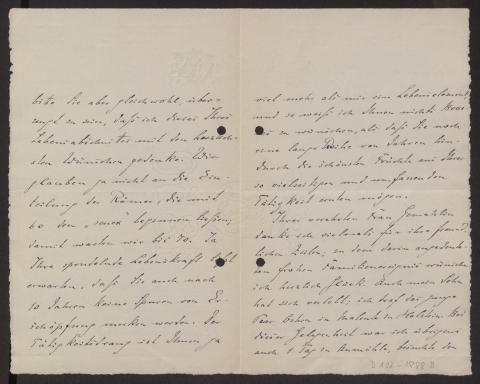 bitte Sie aber gleichwohl, über-
zeugt zu sein, daß ich dieses Ihres
Lebensabschnittes mit den herzlich-
sten Wünschen gedenke. Wir
glauben ja nicht an die Ein-
teilung der Römer, die mit
60 den „senex" beginnen ließen;
damit warten wir bis 70. Ja
Ihre sprudelnde Lebenskraft läßt
erwarten, daß Sie auch nach
10 Jahren keine Spuren von Er-
schöpfung merken werden. Der
Tätigkeitsdrang ist Ihnen ja
viel mehr als nur ein Lebenselement,
und so weiß ich Ihnen nichts
zu wünschen, als daß Sie noch
eine lange Reihe von Jahren hin-
durch die schönsten Früchte aus Ihrer
so vielseitigen und umfassenden
Tätigkeit ernten mögen.
Ihrer verehrten Frau Gemahlin
danke ich vielmals für ihre freund-
lichen Zeilen; zu dem darin angedeute-
ten frohen Familienereignis wünsche
ich herzlich Glück. Auch mein Sohn
hat sich verlobt; ich traf das junge
Paar Ostern in Malente in Holstein. Bei
dieser Gelegenheit war ich übrigens
auch 1 Tag in Aumühle, besuchte den